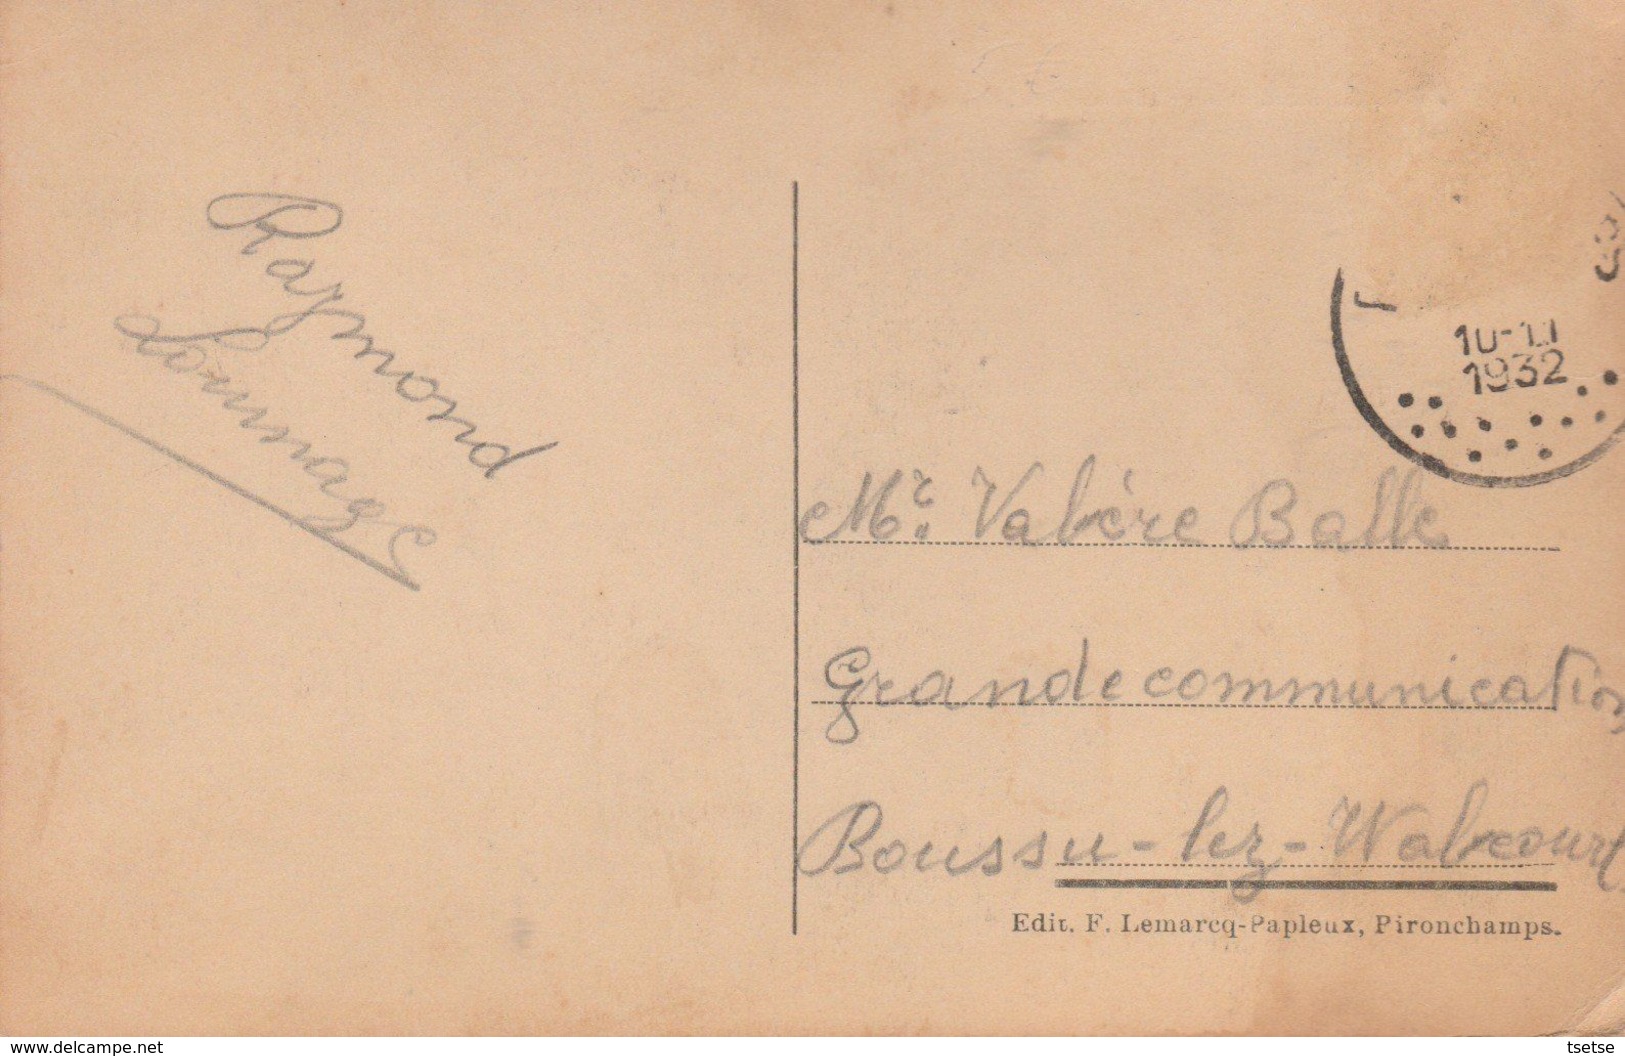 Raymond
1932
Mr. Valère Balle
Grande communication
Boussu-lez-Walcourt
Edit. F. Lemarcq-Papleux, Pironchamps.
www.delcampe.net
tsetse